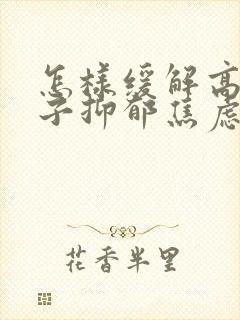 怎样缓解高
子抑郁焦虑
花香半里